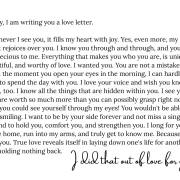 y, I am writing you a love letter.
never I see you, it fills my heart with joy. Yes, even more, my
t rejoices over you. I know you through and through, and you
ecious to me. Everything that makes you who you are, is unic
tiful, and worthy of love. I wanted you. You are not a mistake
the moment you open your eyes in the morning, I can hardl
to spend the day with you. I love your voice and wish you kne
too. I know all the things that are hidden within you. I see y
are worth so much more than you can possibly grasp right no
you could see yourself through my eyes! You wouldn't be abl
smiling. I want to be by your side forever and not miss a sing
nd to hold you, comfort you, and strengthen you. I long for y
e home, run into my arms, and truly get to know me. Because
you. True love reveals itself in laying down one's life for anoth
holding nothing back.
I did that out of love for